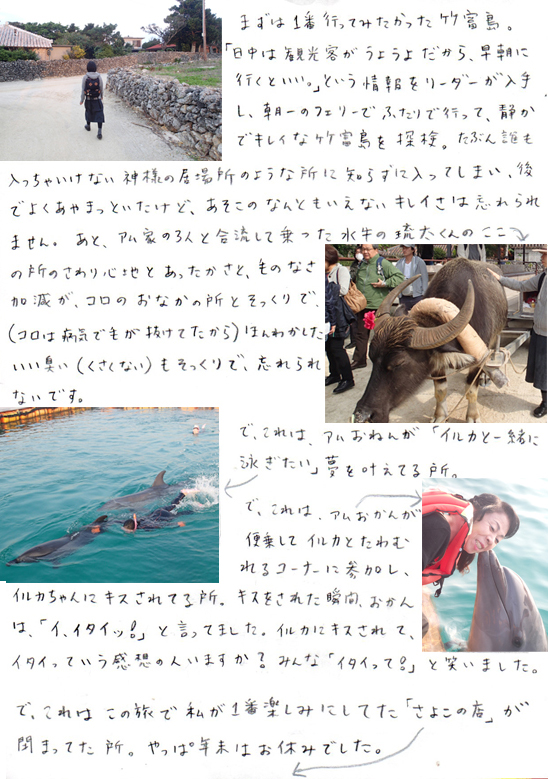 まずは1番行ってみたかった竹富島。
「日中は観光客がうようよだから、早朝に
行くといい。」という情報をリーダーが入手
し、朝一のフェリーでふたりで行って、静か
でキレイな竹富島を探検。たぶん誰も
入っちゃいけない神様の居場所のような所に知らずに入ってしまい、後
でよくあやまっといたけど、あそこのなんともいえないキレイさは忘れられ
ません。あと、アム家の3人と合流して乗った水牛の琉太くんのここ
の所のさわり心地とあったかさと、毛のなさ
加減が、コロのおなかの所とそっくりで、
(コロは病気で毛が抜けてたから)ほんわかした
いい臭い(くさくない)もそっくりで、忘れられ
ないです。
で、これは、アムおねんが「イルカと一緒に
泳ぎたい」夢を叶えてる所。
で、これは、アムおかんが
便乗してイルカとたわむ
れるコーナーに参加し、
イルカちゃんにキスされてる所。キスをされた瞬間、おかん
は、「イ、イタイッ!」と言ってました。イルカにキスされて、
イタイっていう感想の人いますか?みんな「イタイって!」と笑いました。
で、これはこの旅で私が1番楽しみにしてた「さよこの店」が
閉まってた所。やっぱ年末はお休みでした。